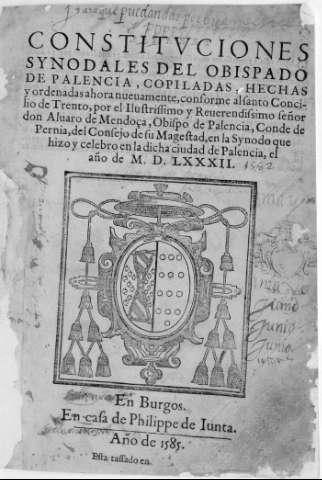 CONSTITVCIONES
SYNODALES DEL OBISPADO
DE PALENCIA, COPILADAS, HECHAS
y ordenadas ahora nueuamente, conforme al santo Conci-
lio de Trento, por el Ilustrissimo y Reuerendissimo señor
don Aluaro de Mendoça, Obispo de Palencia, Conde de
Pernia, del Consejo de su Magestad, en la Synodo que
hizo y celebro en la dicha ciudad de Palencia, el
año de M. D. LXXXII. 1582
Junio
En Burgos.
En casa de Philippe de Iunta.
Año de 1585.
Esta tassado en